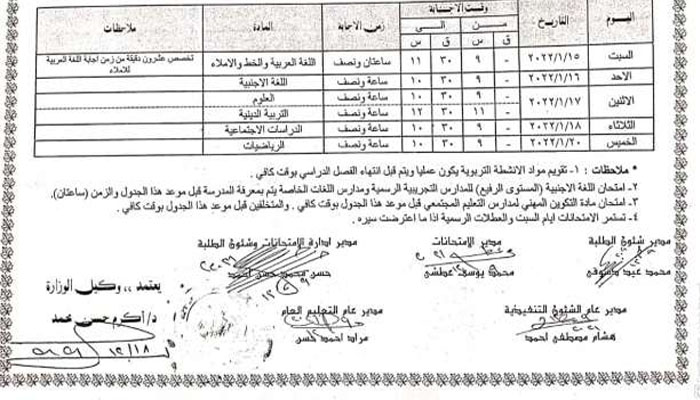 اليوم التاريخ وقت الإجابة زمن الاجابة المادة ملاحظات
من الى
ق س ق س
السبت ٢٠٢٢/١/١٥ - ٩ ٣٠ ١١ ساعتان ونصف اللغة العربية والخط والاملاء تخصص عشرون دقيقة من زمن اجابة اللغة العربية للاملاء
الاحد ٢٠٢٢/١/١٦ - ٩ ٣٠ ١٠ ساعة ونصف اللغة الاجنبية
الاثنين ٢٠٢٢/١/١٧ - ٩ ٣٠ ١٠ ساعة ونصف العلوم
- ١١ ٣٠ ١٢ ساعة ونصف التربية الدينية
الثلاثاء ٢٠٢٢/١/١٨ - ٩ ٣٠ ١٠ ساعة ونصف الدراسات الاجتماعية
الخميس ٢٠٢٢/١/٢٠ - ٩ ٣٠ ١٠ ساعة ونصف الرياضيات
* ملاحظات : ١- تقويم مواد الانشطة التربوية يكون عمليا ويتم قبل انتهاء الفصل الدراسي بوقت كافي .
٢. امتحان اللغة الاجنبية (المستوى الرفيع) للمدارس التجريبية الرسمية ومدارس اللغات الخاصة يتم بمعرفة المدرسة قبل موعد هذا الجدول والزمن (ساعتان).
٣. امتحان مادة التكوين المهني لمدارس التعليم المجتمعي قبل موعد هذا الجدول بوقت كافي . والمتخلفين قبل موعد هذا الجدول بوقت كافي .
٤. تستمر الامتحانات ايام السبت والعطلات الرسمية اذا ما اعترضت سيره .
مدير شئون الطلبة مدير الامتحانات مدير ادارة الامتحانات وشئون الطلبة
محمد عيد دسوقي محمد يوسف عطشي حسن محمد حسن احمد
يعتمد ،، وكيل الوزارة
مدير عام الشئون التنفيذية مدير عام التعليم العام
د/ أكرم حسن محمد
هشام مصطفى احمد مراد احمد حسن
١٢/١٨